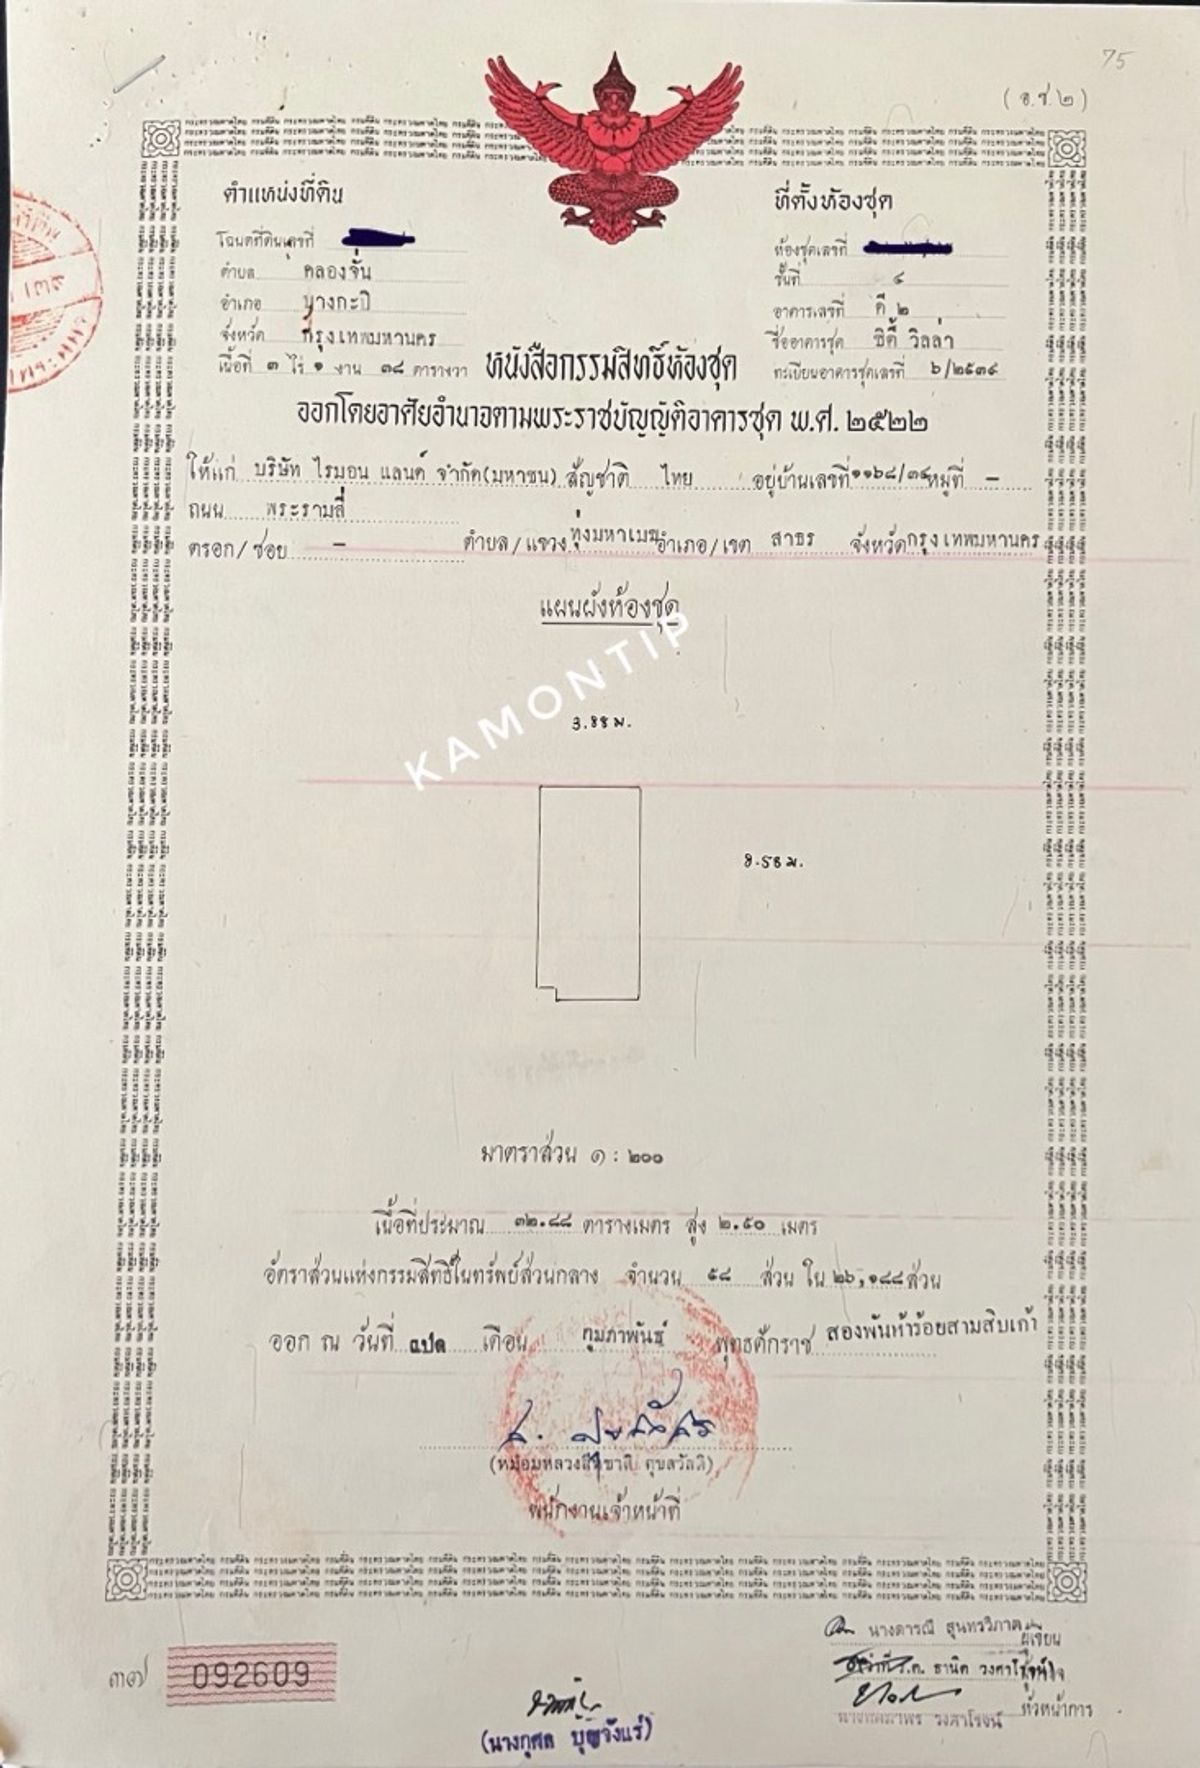 75
(อ.ช.๒)
ตำแหน่งที่ดิน
โฉนดที่ดินเลขที่
ตำบล คลองจั่น
อำเภอ บางกะปิ
จังหวัด กรุงเทพมหานคร
เนื้อที่ ๓ ไร่ ๑ งาน ๓๘ ตารางวา
ที่ตั้งห้องชุด
ห้องชุดเลขที่
ชั้นที่ ๔
อาคารเลขที่ ดี ๒
ชื่ออาคารชุด ซิตี้ วิลล่า
ทะเบียนอาคารชุดเลขที่ ๖/๒๕๓๔
หนังสือกรรมสิทธิ์ห้องชุด
ออกโดยอาศัยอำนาจตามพระราชบัญญัติอาคารชุด พ.ศ. ๒๕๒๒
ให้แก่ บริษัท ไรมอน แลนด์ จำกัด(มหาชน) สัญชาติ ไทย อยู่บ้านเลขที่ หมู่ที่ -
ถนน พระรามสี่
ตรอก/ซอย - ตำบล/แขวง ทุ่งมหาเมฆ อำเภอ/เขต สาธร จังหวัด กรุงเทพมหานคร
แผนผังห้องชุด
KAMONTIP
3.88 ม.
8.58 ม.
มาตราส่วน ๑ : ๒๐๐
เนื้อที่ประมาณ ๓๒.๘๘ ตารางเมตร สูง ๒.๕๐ เมตร
อัตราส่วนแห่งกรรมสิทธิ์ในทรัพย์ส่วนกลาง จำนวน ๕๘ ส่วน ใน ๒๖,๑๘๘ ส่วน
ออก ณ วันที่ แปด เดือน กุมภาพันธ์ พุทธศักราช สองพันห้าร้อยสามสิบเก้า
พนักงานเจ้าหน้าที่
๓๗ 092609
นางดารณี สุนทรวิภาต ผู้เขียน
ธานิต วงศาโรจน์
หัวหน้าการ
วงศาโรจน์
(นางกุศล บุญจังแร่)